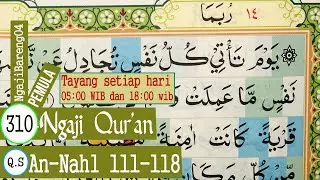 ١٤
رُبَمَا
يَوْمَ تَأْتِي كُلُّ نَفْسٍ تُجَادِلُ عَنْ
نَفْسٍ مَّا عَمِلَتْ
قَرْيَةً كَانَتْ اٰمِنَةً
NgajiBareng04
PEMULA
Tayang setiap hari
05:00 WIB dan 18:00 wib
310 Ngaji Qur'an
Q.S An-Nahl 111-118